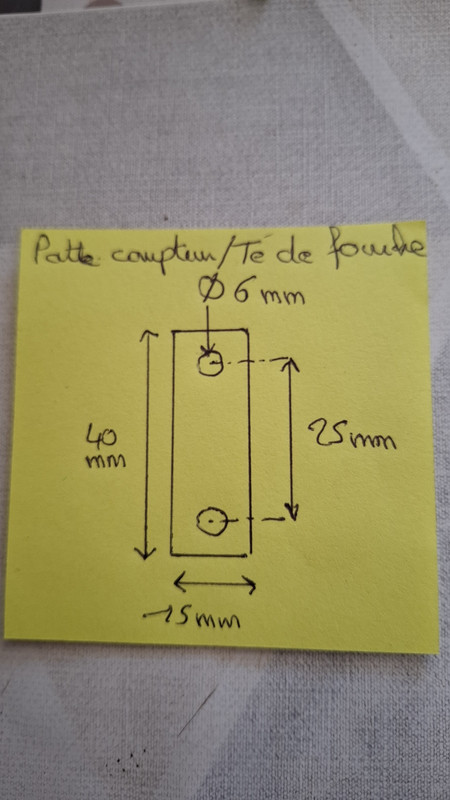 Patte compteur/Té de fourche
Ø 6 mm
40
mm
25mm
15mm